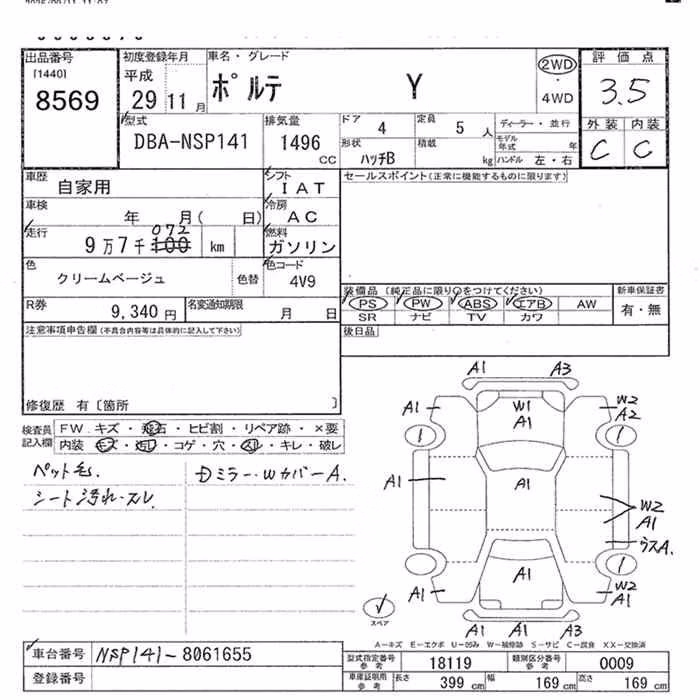 出品番号
[1440]
8569
初度登録年月
平成
29 11 月
車名・グレード
ポルテ Y
2WD
・
4WD
評価点
3.5
外装 内装
C C
型式
DBA-NSP141
排気量
1496
cc
ドア 4
定員 5 人
形状 ハッチB
積載 kg
ディーラー・並行
モデル年式 年
ハンドル 左・右
車歴 自家用
シフト IAT
セールスポイント(正常に機能するものに限ります)
車検 年 月( 日)
冷房 AC
走行 9万7千 100 072 km
燃料 ガソリン
色 クリームベージュ 色替
色コード 4V9
装備品 (純正品に限り○をつけてください)
PS PW ABS エアB AW
SR ナビ TV カワ
新車保証書
有・無
R券 9,340 円
名変通知期限 月 日
後日品
注意事項申告欄(不具合内容等は具体的に記入して下さい)
修復歴 有〔箇所 〕
検査員記入欄
FW. キズ・飛石・ヒビ割・リペア跡・×要
内装 キズ・汚れ・コゲ・穴・スレ・キレ・破レ
ペット毛.
シート汚れ・スレ
Dミラー・Wカバー A.
A1 A3
A1 W1 A1 W2 A2
A1 A1 W2 A1
ラスA.
A1 A1 W2 A1
A1 A1 A3
スペア
A-キズ E-エクボ U-凹み W-補修跡 S-サビ C-腐食 XX-交換済
車台番号 NSP141-8061655
登録番号
型式指定番号参考 18119
類別区分番号参考 0009
車庫証明用参考 長さ 399 cm 幅 169 cm 高さ 169 cm